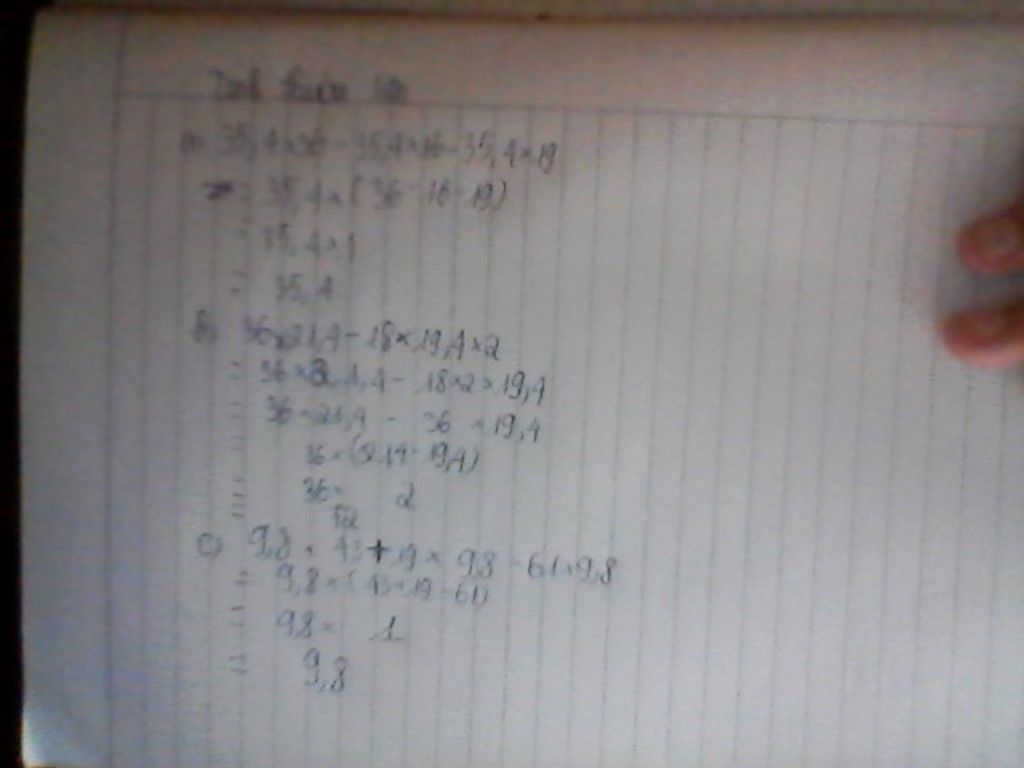 a) 35,4×36 - 35,4×16 - 35,4×19
= 35,4×(36-16-19)
= 35,4×1
= 35,4
b) 36×21,4 - 18×19,4×2
= 36×21,4 - 18×2×19,4
= 36×21,4 - 36 ×19,4
= 36×(21,4-19,4)
= 36× 2
= 72
c) 9,8 × 43 + 19 × 9,8 - 61×9,8
= 9,8×(43+19-61)
= 9,8× 1
= 9,8